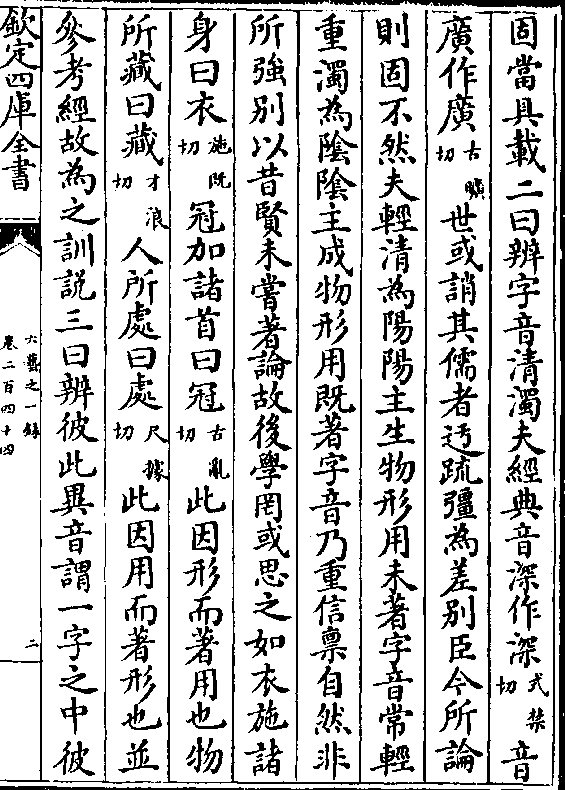 固當具載二曰辨字音清濁夫經典音深作深式禁切音
廣作廣古曠切世或誚其儒者迃疏彊為差别臣今所論
則固不然夫輕清為陽陽主生物形用未著字音常輕
重濁為陰陰主成物形用既著字音乃重信禀自然非
所強别以昔賢未嘗著論故後學罔或思之如衣施諸
身曰衣施既切冠加諸首曰冠古亂切此因形而著用也物
所藏曰藏才浪切人所處曰處尺據切此因用而著形也並
參考經故為之訓說三曰辨彼此異音謂一字之中彼
欽定四庫全書
六藝之一錄
卷二百四十四
二